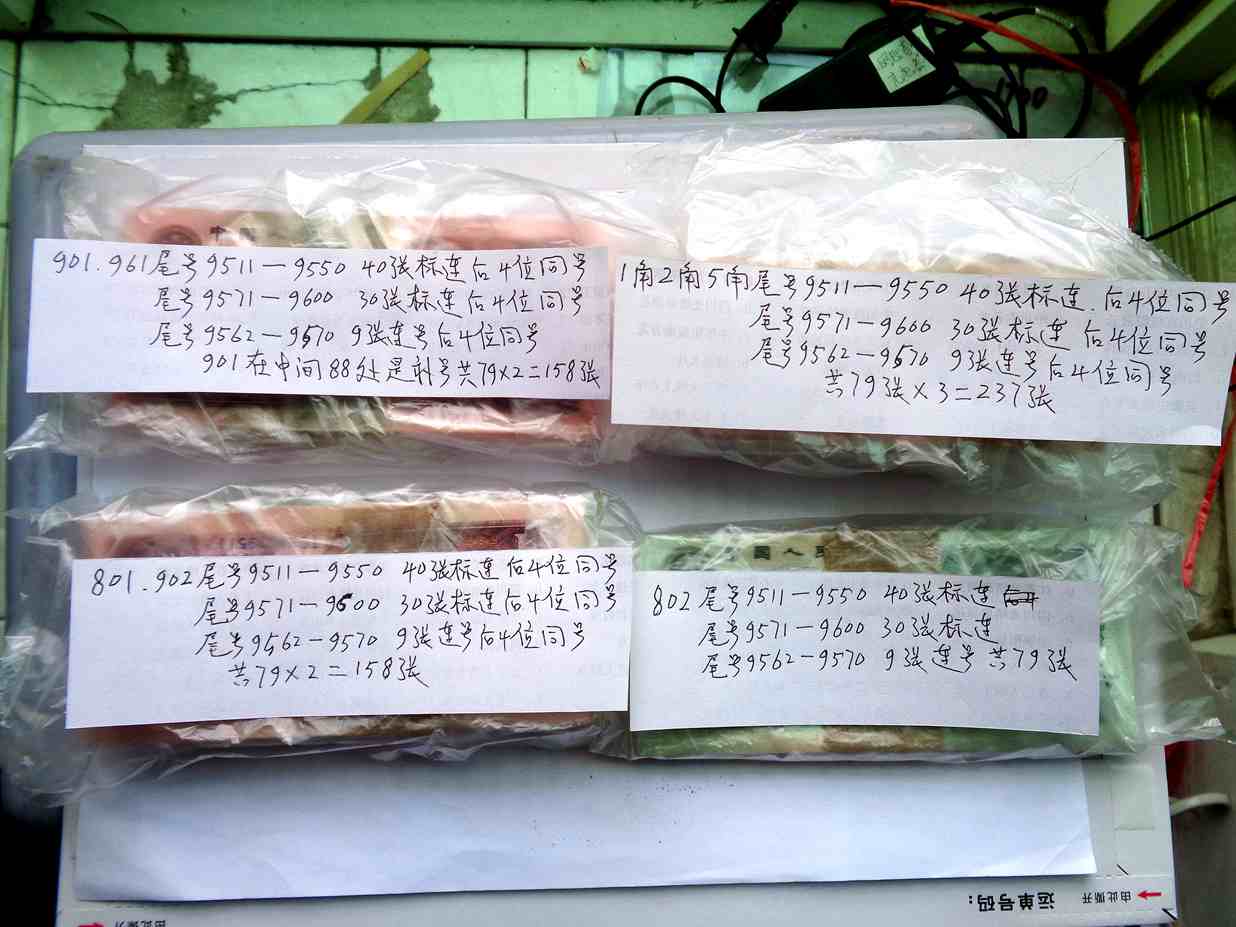 901.961尾号9511—9550 40张标连后4位同号
尾号9571—9600 30张标连后4位同号
尾号9562—9570 9张连号后4位同号
901在中间88处是补号共79×2=158张
1角2角5角尾号9511—9550 40张标连.后4位同号
尾号9571—9600 30张标连后4位同号
尾号9562—9570 9张连号后4位同号
共79张×3=237张
801.902尾号9511—9550 40张标连后4位同号
尾号9571—9600 30张标连后4位同号
尾号9562—9570 9张连号后4位同号
共79×2=158张
国人民
802尾号9511—9550 40张标连
尾号9571—9600 30张标连
尾号9562—9570 9张连号共79张
运单号码：
由此撕开
由此撕开